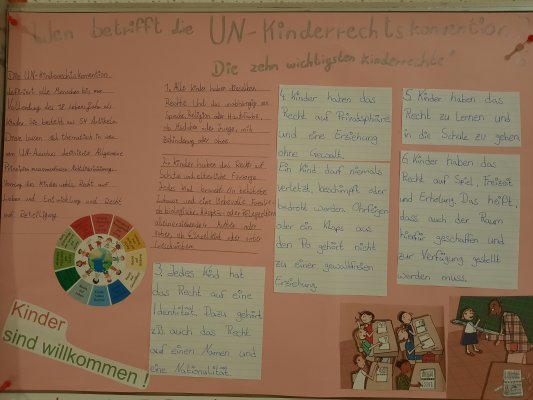 Wen betrifft die UN-Kinderrechtskonvention
Die zehn wichtigsten Kinderrechte
Die UN-Kinderrechtskonvention
definiert alle Menschen bis zur
Vollendung des 18 Lebensjahr als
Kinder. Sie besteht aus 54 Artikeln.
Diese lassen sich thematisch in vier
vom UN-Ausschuss definierte Allgemeine
Prinzipien
Vorrang des Kindeswohls, Recht auf
Leben und Entwicklung und Recht
auf Beteiligung.
1. Alle Kinder haben dieselben
Rechte. Und das unabhängig von
Sprache, Religion oder Hautfarbe,
ob Mädchen oder Junge, mit
Behinderung oder ohne.
2. Kinder haben das Recht auf
Schutz und elterliche Fürsorge.
Jedes Kind
3. Jedes Kind hat
das Recht auf eine
Identität. Dazu gehört
z.B. auch das Recht
auf einen Namen und
eine Nationalität
4. Kinder haben das
Recht auf Privatsphäre
und eine Erziehung
ohne Gewalt.
Ein Kind darf niemals
verletzt, beschimpft oder
bedroht werden. Ohrfeigen
oder ein Klaps auf
den Po gehört nicht
zu einer gewaltfreien
Erziehung.
5. Kinder haben das
Recht zu Lernen und
in die Schule zu gehen.
6. Kinder haben das
Recht auf Spiel, Freizeit
und Erholung. Das heißt,
dass auch der Raum
hierfür geschaffen und
zur Verfügung gestellt
werden muss.
Kinder
sind willkommen!